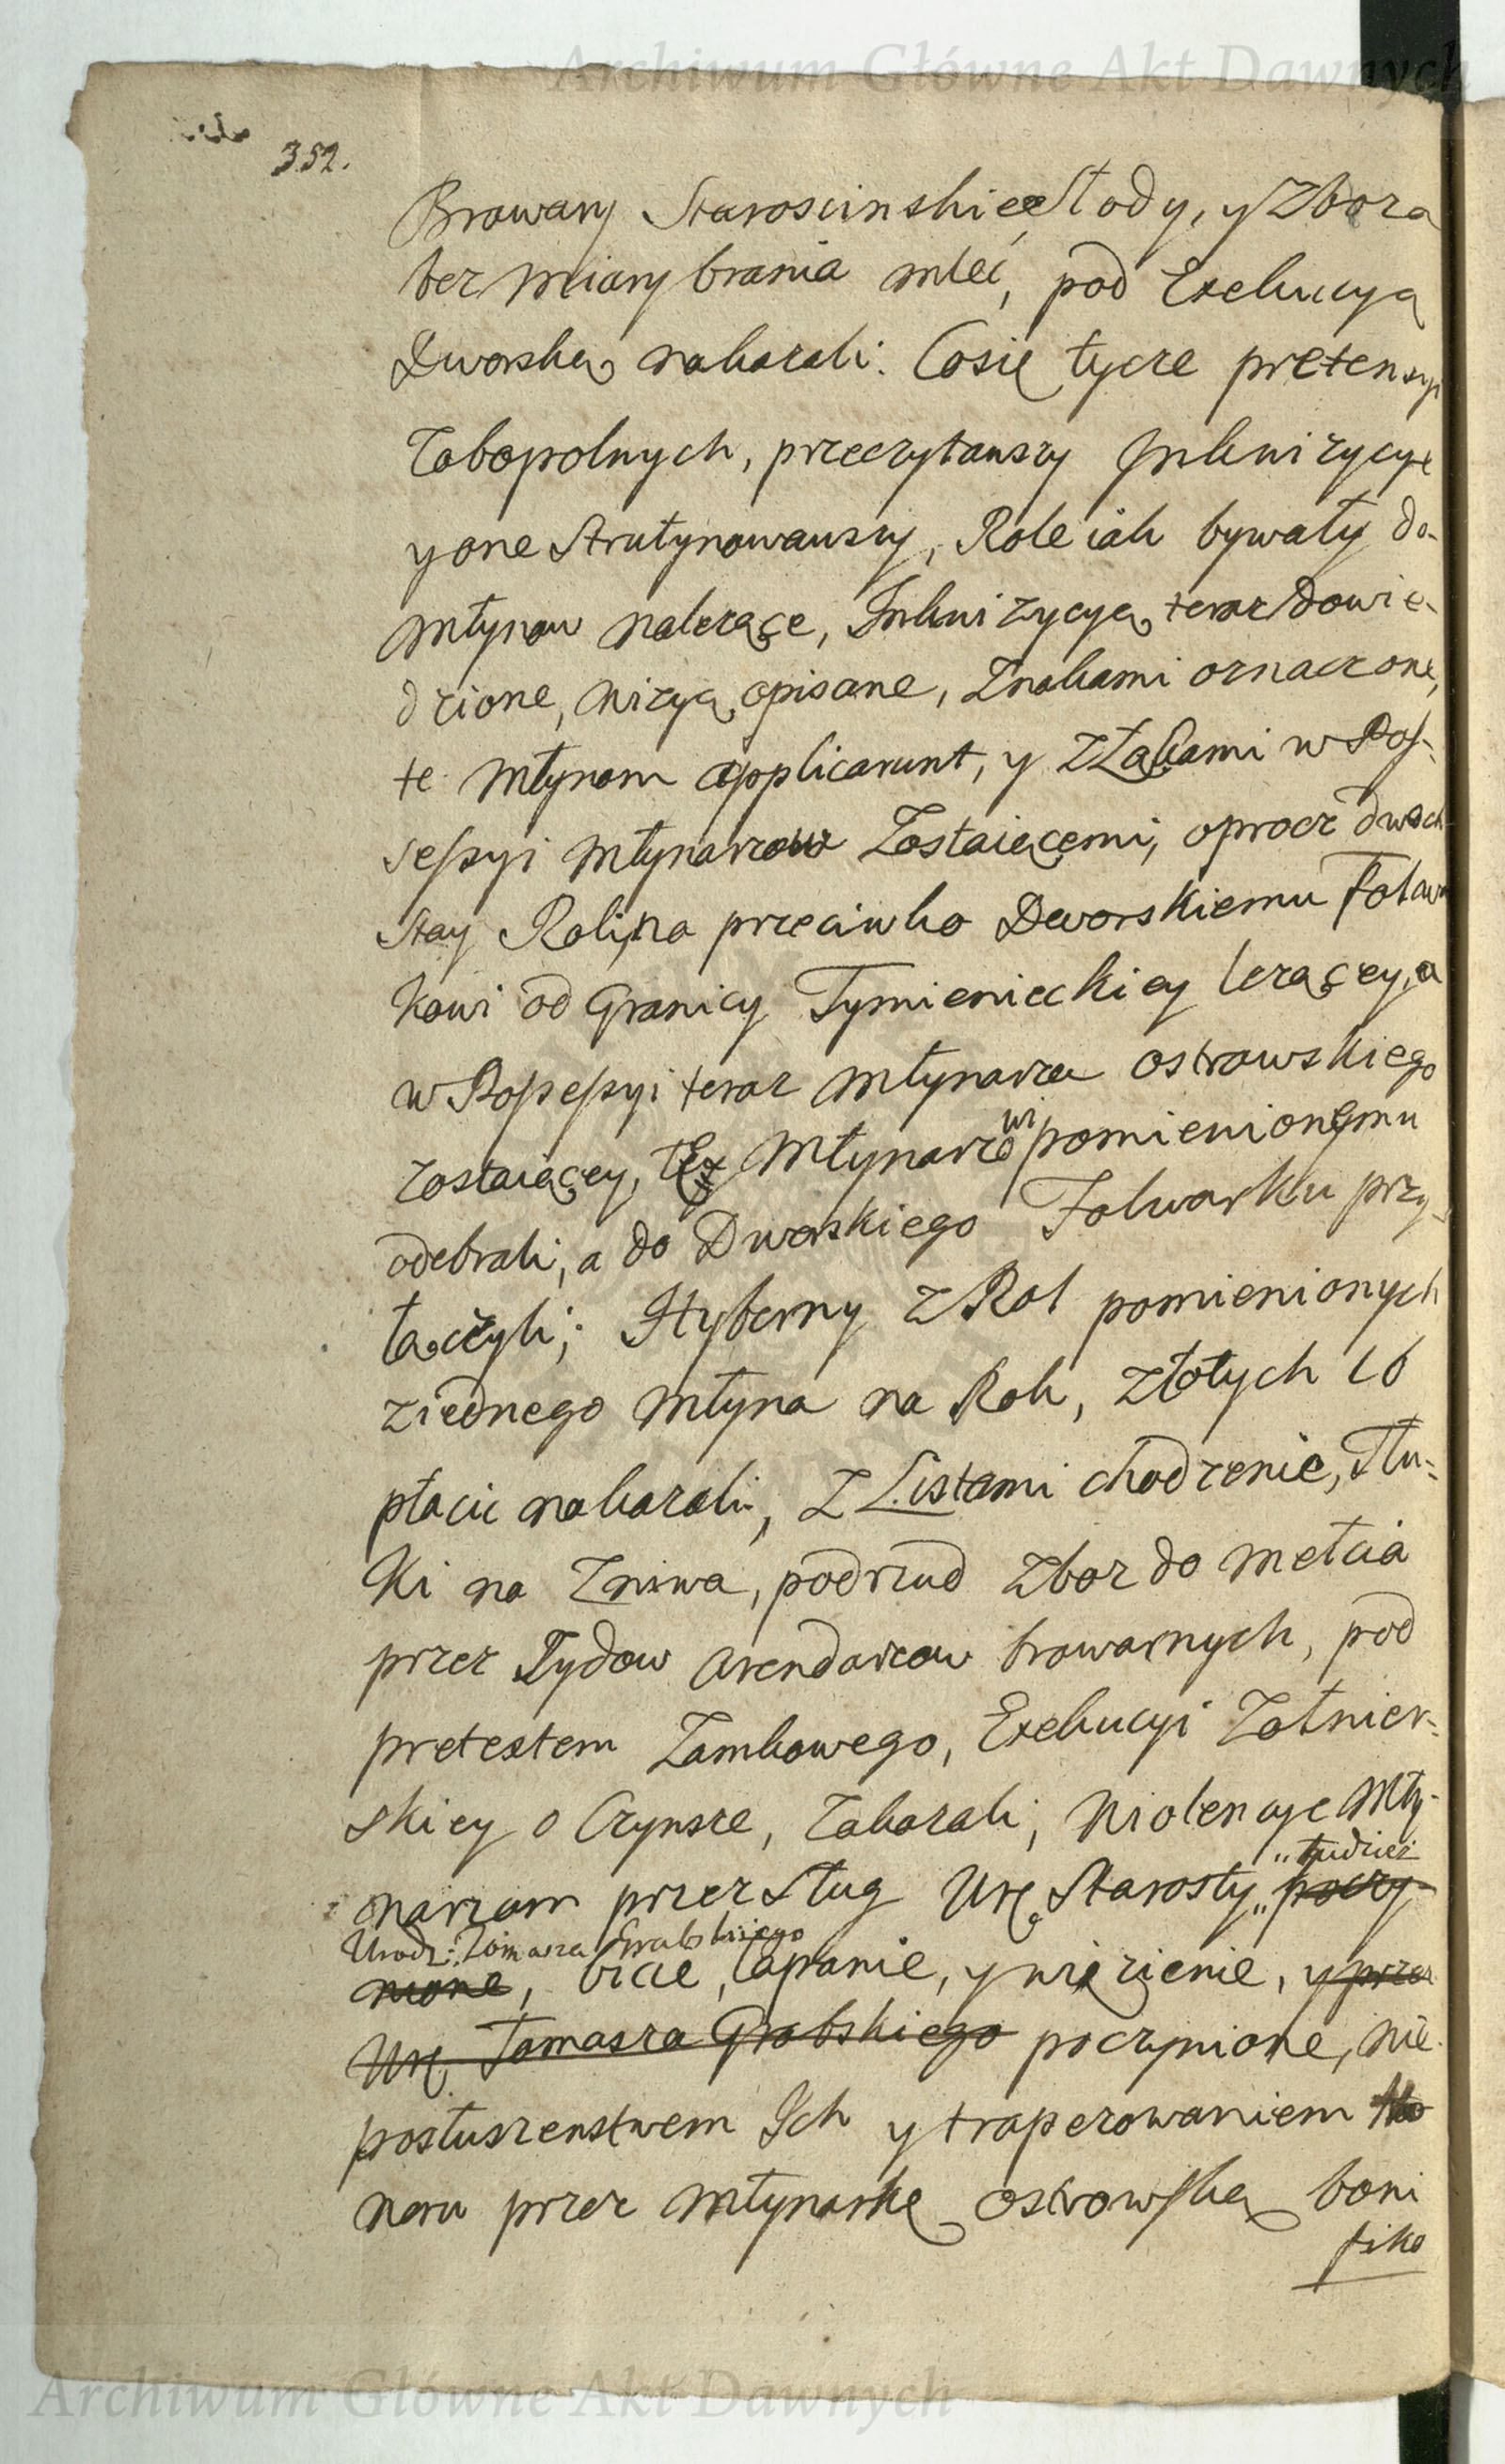 Archiwum Główne Akt Dawnych
352.
Browary Staroscinskie Słody, y Zboza
bez miary brania mleć, pod Exekucyą
Dworską nakazali. Cosię tycze pretensyi
Tokopolnych, przeczytawszy Inkwizycye
y one Strutynowawszy, Role iak bywały do-
młynow nalezące, Inkwizycyą teraz dowie-
dzione, wizyą opisane, Znakami oznaczone,
te Młynom applicarunt, y Z Łąkami w Pos-
sessyi Młynarzow Zostaiącemi, oprocz dwoch
Stay Roli, na przeciwko Dworskiemu Folwar
kowi od Granicy Tymienieckiey lezącey, a
w Possessyi teraz Młynarza Ostrowskiego
zostaiącey, tęż Młynarzowi pomienionemu
odebrali, a do Dworskiego Folwarku przy-
łączyli; Hyberny z Rol pomienionych
z iednego Młyna na Rok, złotych 16
płacic nakazali, Z Listami chodzenie, Tłu-
ki na Zniwa, podrzud Zboz do mełcia
przez Zydow Arendarzow browarnych, pod
pretextem Zamkowego, Exekucyi Zołnier-
skiey o Czynsze, Zakazali, Violencye Mły-
„ tudziez
narzom przez Sług Ur Starosty „ poczy-
Urodz: Tomasza Grabskiego
nione, bicie, łapanie, y więzienie, y przez
Ur Tomasza Grabskiego poczynione, nie
posłuszenstwem Ich y traperowaniem
noru przez Młynarkę Ostrowską boni
fiko
Archiwum Główne Akt Dawnych